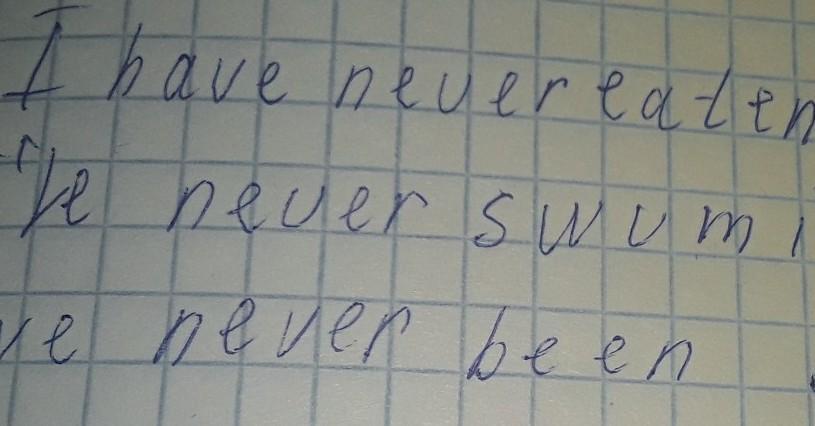 I have never eaten
've never swum i
ve never been